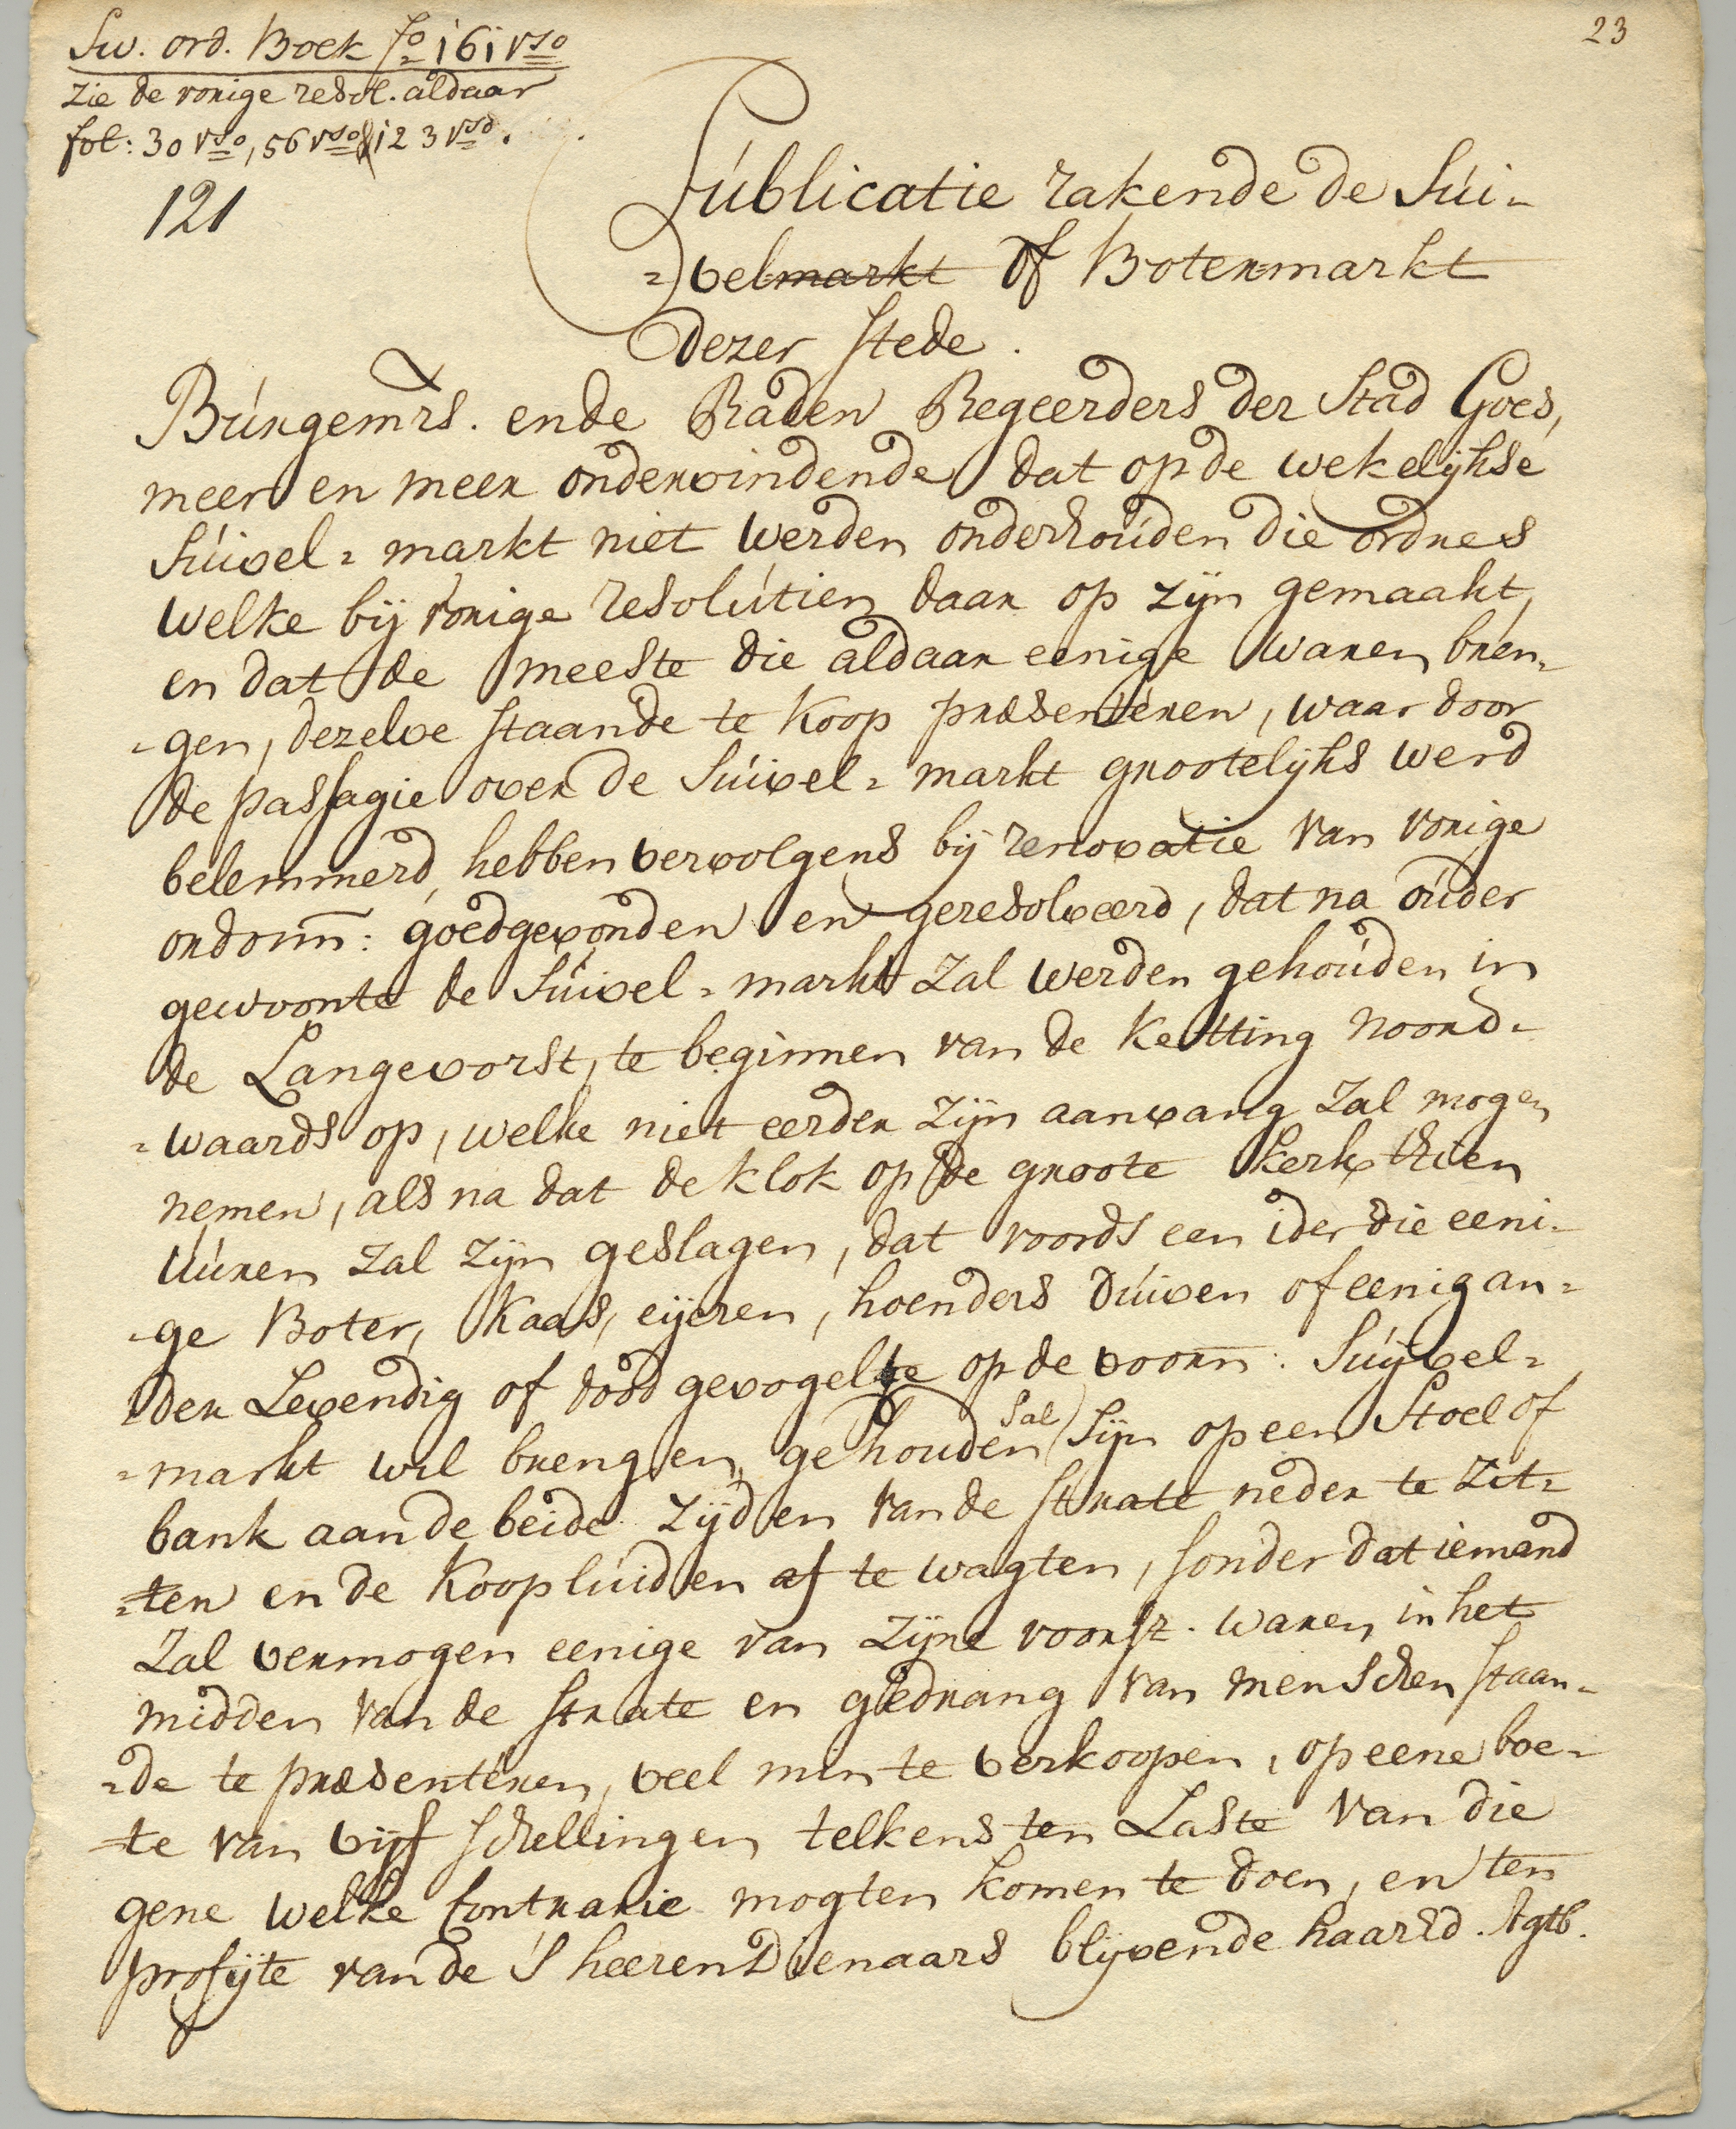 23
Sw. ord. Boek fo 161 vso
zie de vorige resol. aldaar
fol: 30 vso, 56 vso & 123 vso.
121
Publicatie rakende de Sui-
=velmarkt of Botermarkt
dezer stede.
Burgemrs. ende Raden Regeerders der Stad Goes,
meer en meer ondervindende dat op de wekelijkse
Suivel=markt niet werden onderhouden die ordres
welke bij vorige resolutien daar op zijn gemaakt,
en dat de meeste die aldaar eenige waren bren=
-gen, dezelve staande te koop præsenteren, waar door
de passagie over de Suivel=markt grootelijks werd
belemmerd, hebben vervolgens bij renovatie van vorige
ordonn: goedgevonden en geresolveerd, dat na ouder
gewoonte de Suivel=markt zal werden gehouden in
de Langevorst, te beginnen van de Ketting noord=
=waards op, welke niet eerder zijn aanvang zal mogen
nemen, als na dat de klok op de groote kerk thien
uuren zal zijn geslagen, dat voords een ider die eeni=
-ge Boter, Kaas, eijeren, hoenders duiven of eenig an=
=der Levendig of dood gevogelte op de voorn: Suijvel=
=markt wil brengen, gehouden Sal Sijn op een Stoel of
bank aan de beide zijden van de strate neder te zit=
=ten en de Koopluiden af te wagten, sonder dat iemand
zal vermogen eenige van zijne voorsz. waren in het
midden van de strate en gedrang van menschen staan=
=de te præsenteren, veel min te verkoopen, op eene boe=
-te van vijf schellingen telkens ten Laste van die
gene welke contrarie mogten komen te doen, en ten
profijte van de S heeren Dienaars blijvende haar Ed. Agtb.